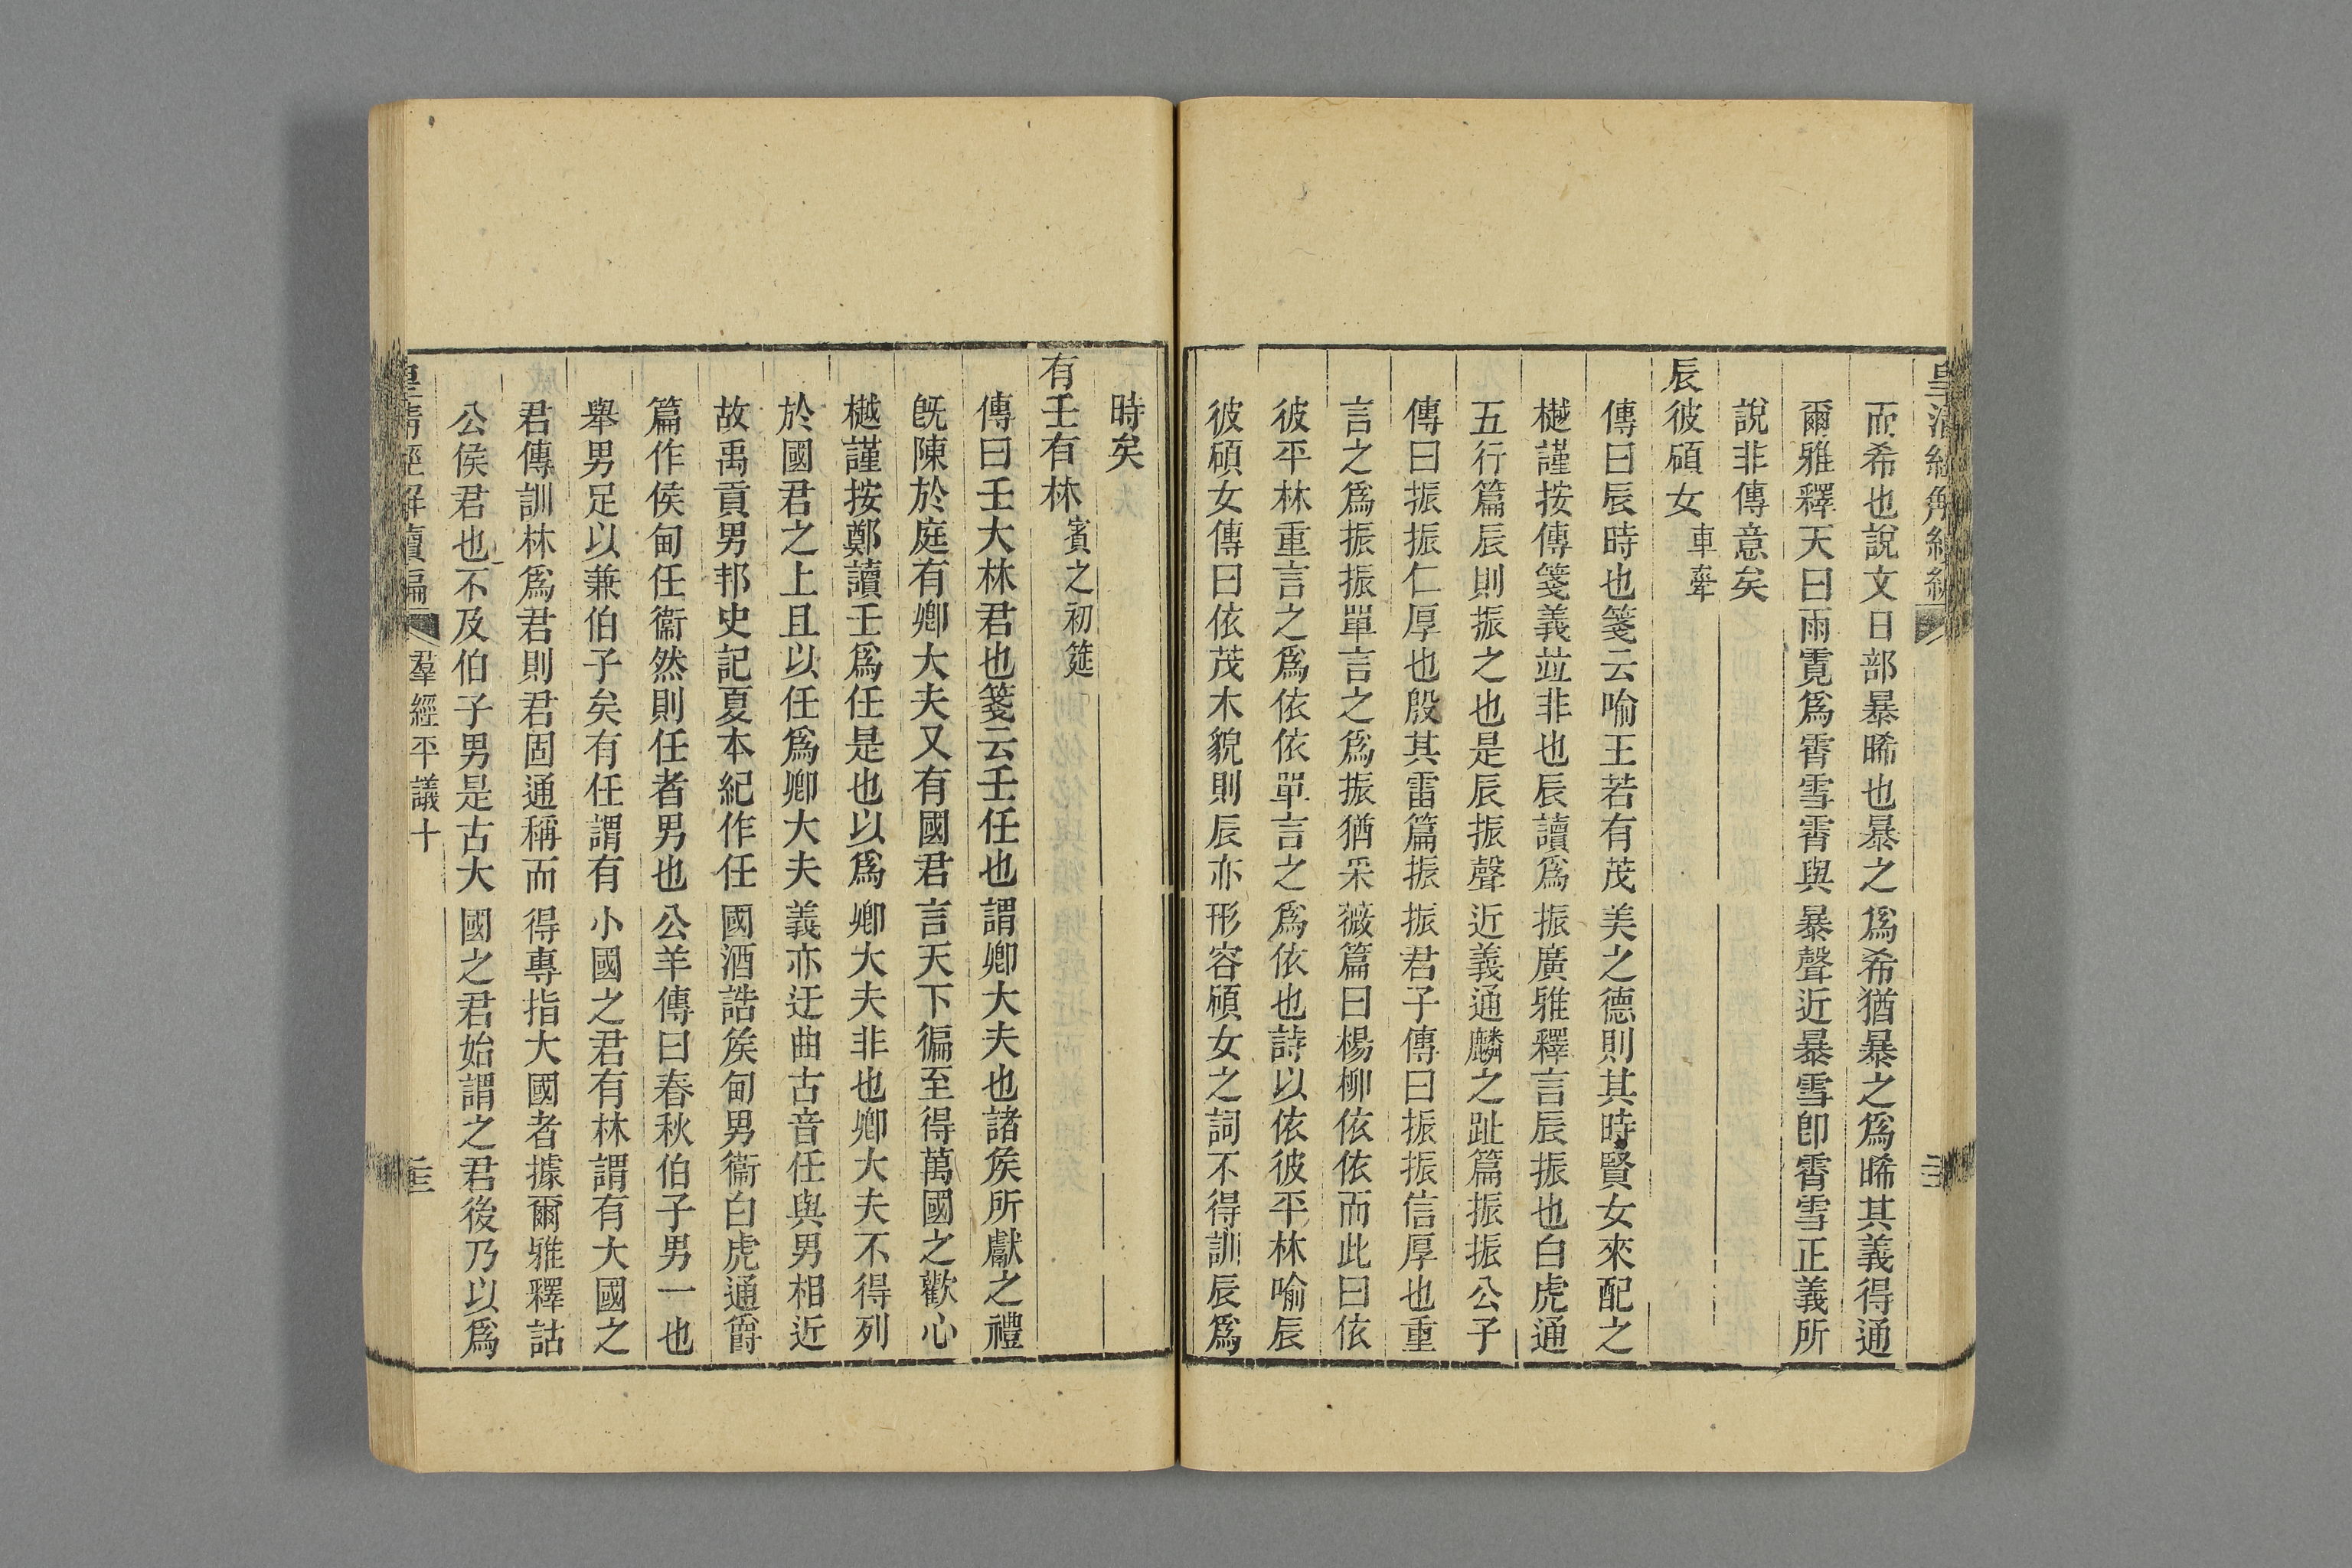 而希也說文日部暴晞也暴之爲希猶暴之爲晞其義得通
爾雅釋天曰雨䨘爲霄雪霄與暴聲近暴雪卽霄雪正義所
說非傳意矣
辰彼碩女車舝
傳曰辰時也箋云喻王若有茂美之德則其時賢女來配之
樾謹按傳箋義竝非也辰讀爲振廣雅釋言辰振也白虎通
五行篇辰則振之也是辰振聲近義通麟之趾篇振振公子
傳曰振振仁厚也殷其雷篇振振君子傳曰振振信厚也重
言之爲振振單言之爲振猶采薇篇曰楊柳依依而此曰依
彼平林重言之爲依依單言之爲依也詩以依彼平林喻辰
彼碩女傳曰依茂木貌則辰亦形容碩女之詞不得訓辰爲
時矣
有壬有林賓之初筵
傳曰壬大林君也箋云壬任也謂卿大夫也諸矦所獻之禮
旣陳於庭有卿大夫又有國君言天下徧至得萬國之歡心
樾謹按鄭讀壬爲任是也以爲卿大夫非也卿大夫不得列
於國君之上且以任爲卿大夫義亦迂曲古音任與男相近
故禹貢男邦史記夏本紀作任國酒誥矦甸男衞白虎通爵
篇作侯甸任衞然則任者男也公羊傳曰春秋伯子男一也
舉男足以兼伯子矣有任謂有小國之君有林謂有大國之
君傳訓林爲君則君固通稱而得專指大國者據爾雅釋詁
公侯君也不及伯子男是古大國之君始謂之君後乃以爲
皇淸經解續編
羣經平議十
三